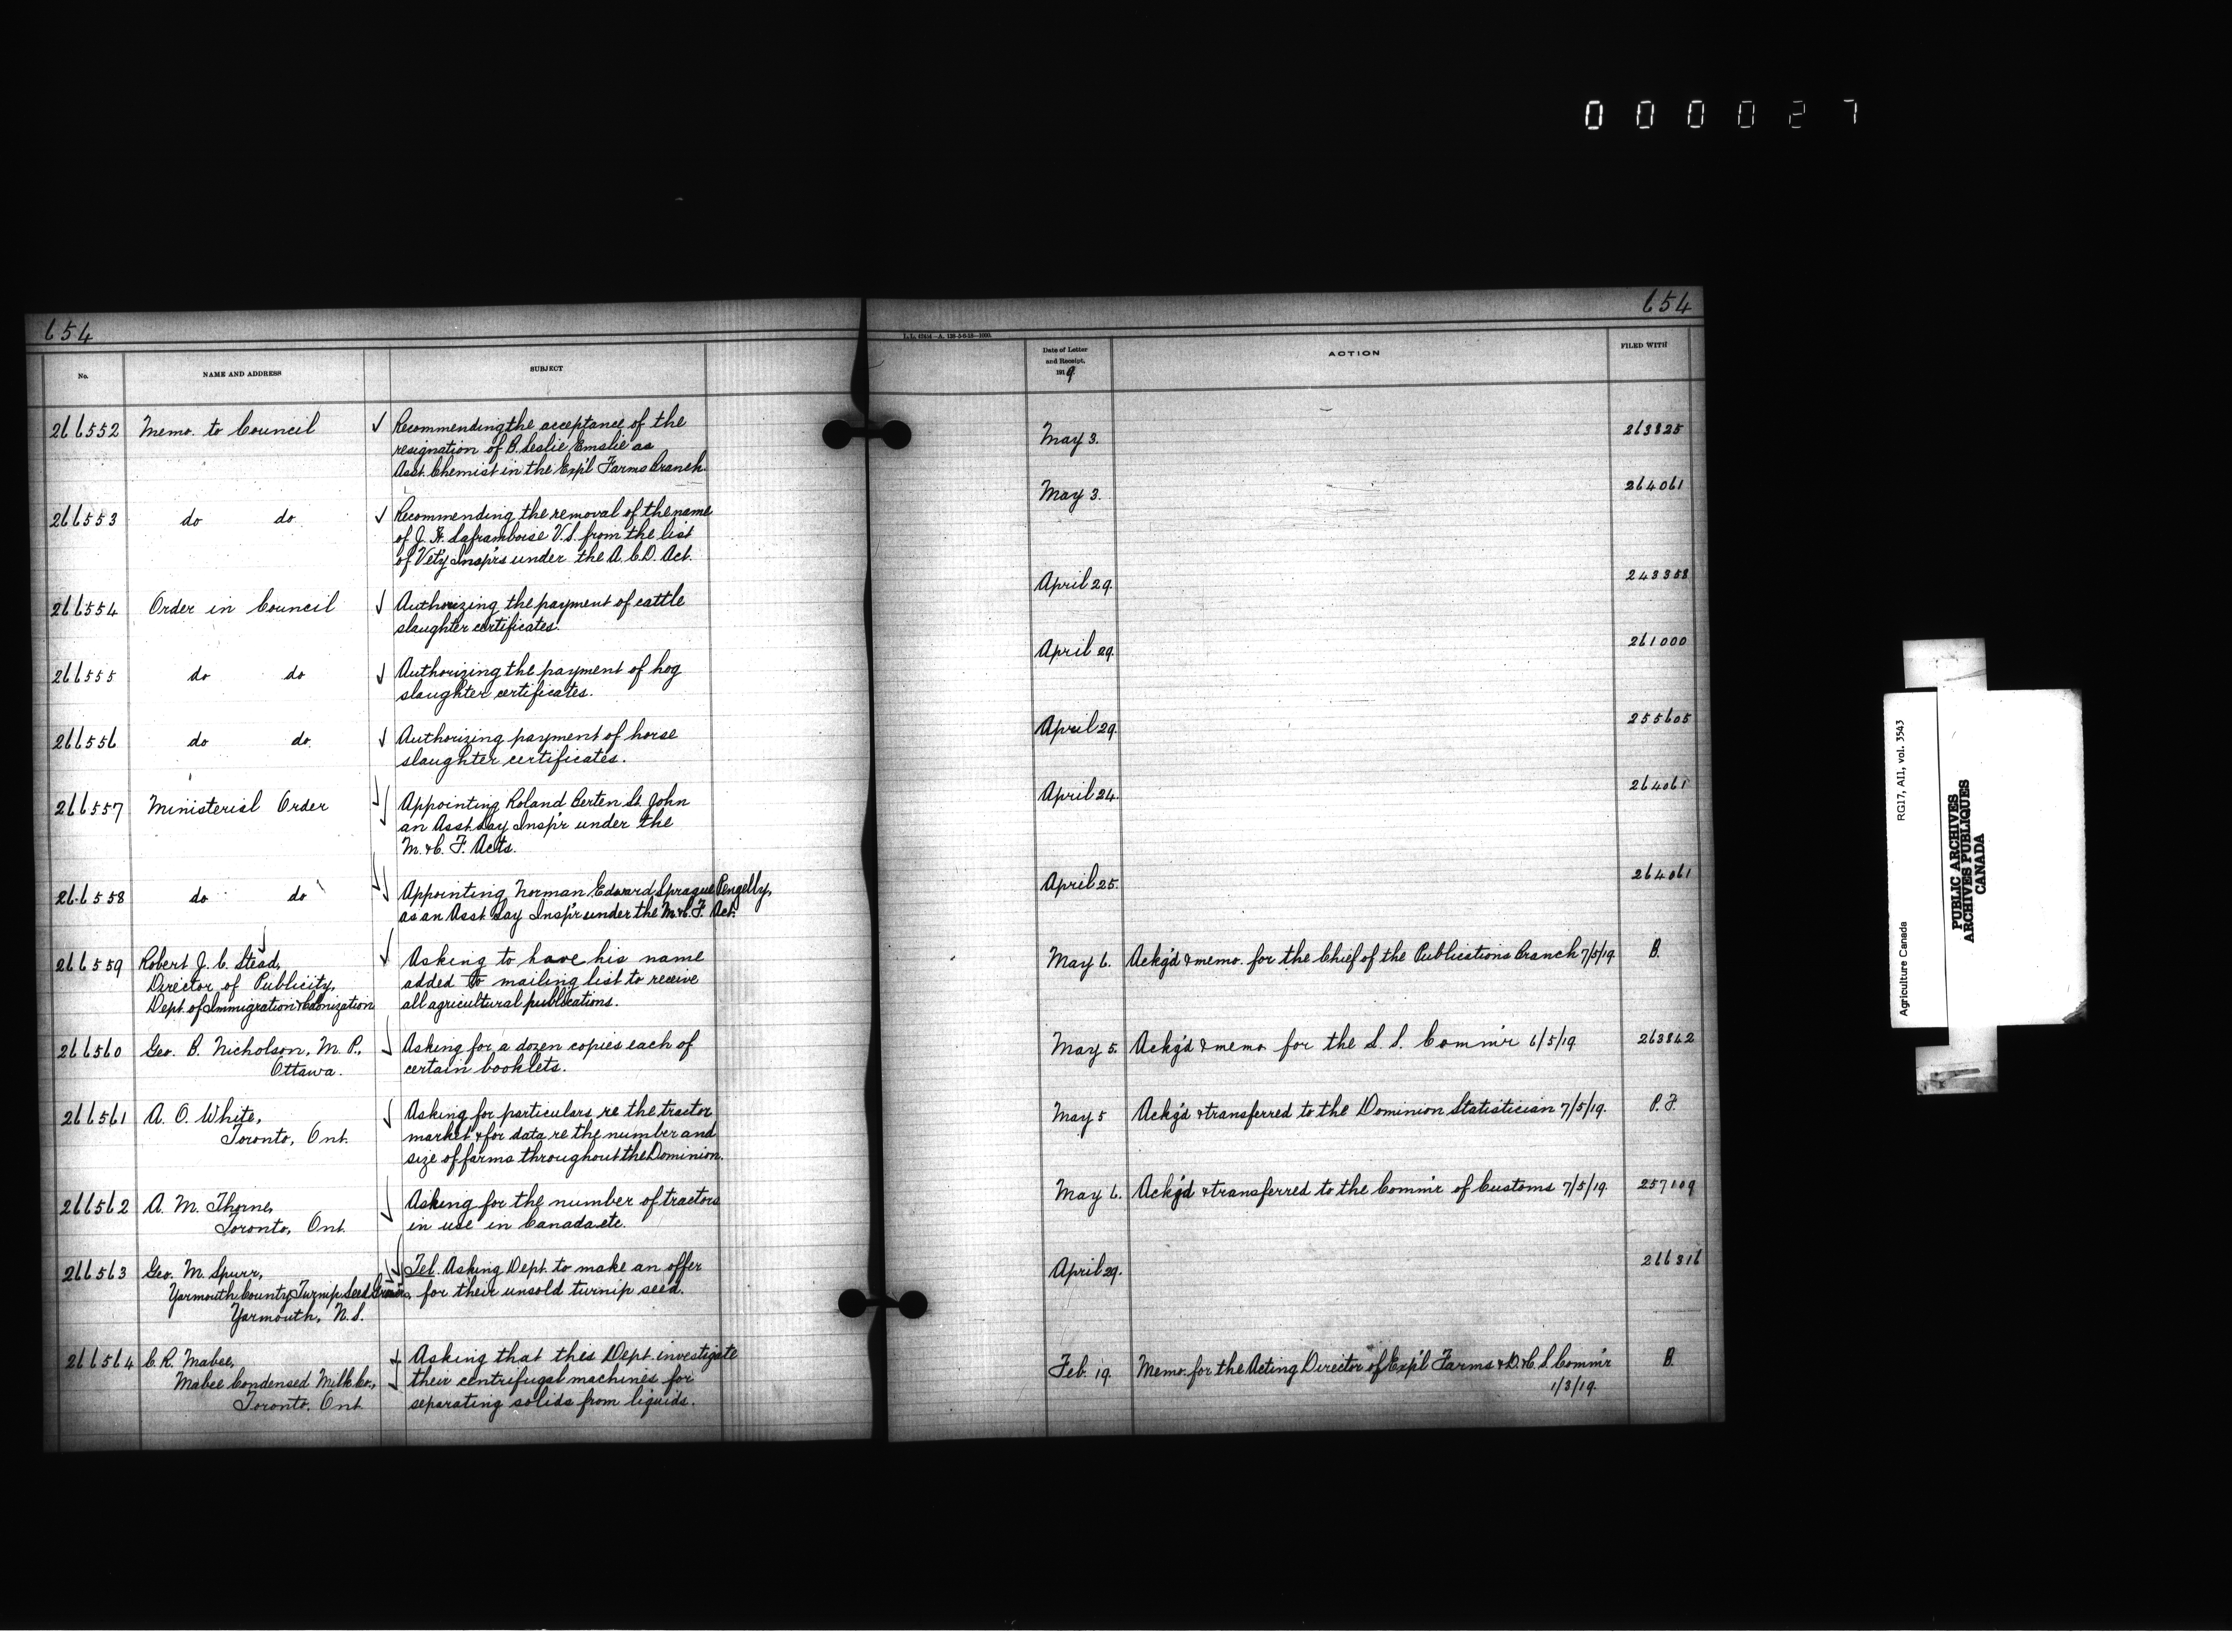 0 0 0 0 2 7
654
No.
NAME AND ADDRESS
SUBJECT
266552 Memo. to Council
Recommending the acceptance of the
resignation of B. Leslie Emslie as
Asst. Chemist in the Exp'l Farms Branch.
266553 do do
Recommending the removal of the name
of J. H. Laframboise V.S. from the list
of Vet'y Insp'rs under the A.C.D. Act.
266554 Order in Council
Authorizing the payment of cattle
slaughter certificates.
266555 do do
Authorizing the payment of hog
slaughter certificates.
266556 do do
Authorizing payment of horse
slaughter certificates.
266557 Ministerial Order
Appointing Roland Berten St. John
an Asst. Lay Insp'r under the
M. & C. F. Acts.
266558 do do
Appointing Norman Edward Sprague Pengelly,
as an Asst. Lay Insp'r under the M. & C. F. Act.
266559 Robert J. C. Stead,
Director of Publicity,
Dept. of Immigration & Colonization
Asking to have his name
added to mailing list to receive
all agricultural publications.
266560 Geo. B. Nicholson, M. P.,
Ottawa.
Asking for a dozen copies each of
certain booklets.
266561 A. O. White,
Toronto, Ont.
Asking for particulars re the tractor
market & for data re the number and
size of farms throughout the Dominion.
266562 A. M. Thorne,
Toronto, Ont.
Asking for the number of tractors
in use in Canada etc.
266563 Geo. M. Spurr,
Yarmouth County Turnip Seed
Yarmouth, N.S.
Tel. Asking Dept. to make an offer
for their unsold turnip seed.
266564 C. R. Mabee,
Mabee Condensed Milk Co.,
Toronto, Ont.
Asking that this Dept. investigate
their centrifugal machines for
separating solids from liquids.
654
Date of Letter
and Receipt,
1919
ACTION
FILED WITH
May 3. 263825
May 3. 264061
April 29. 243358
April 29. 261000
April 29. 255605
April 24. 264061
April 25. 264061
May 6. Ackg'd & memo. for the Chief of the Publications Branch 7/5/19. B.
May 5. Ackg'd & memo for the L. S. Comm'r 6/5/19 263862
May 5 Ackg'd & transferred to the Dominion Statistician 7/5/19. P. F.
May 6. Ackg'd & transferred to the Comm'r of Customs 7/5/19. 257109
April 29. 266316
Feb. 19. Memo. for the Acting Director of Exp'l Farms & D. & C. S. Comm'r B.
1/3/19.
Agriculture Canada RG17, AII, vol. 3543
PUBLIC ARCHIVES
ARCHIVES PUBLIQUES
CANADA